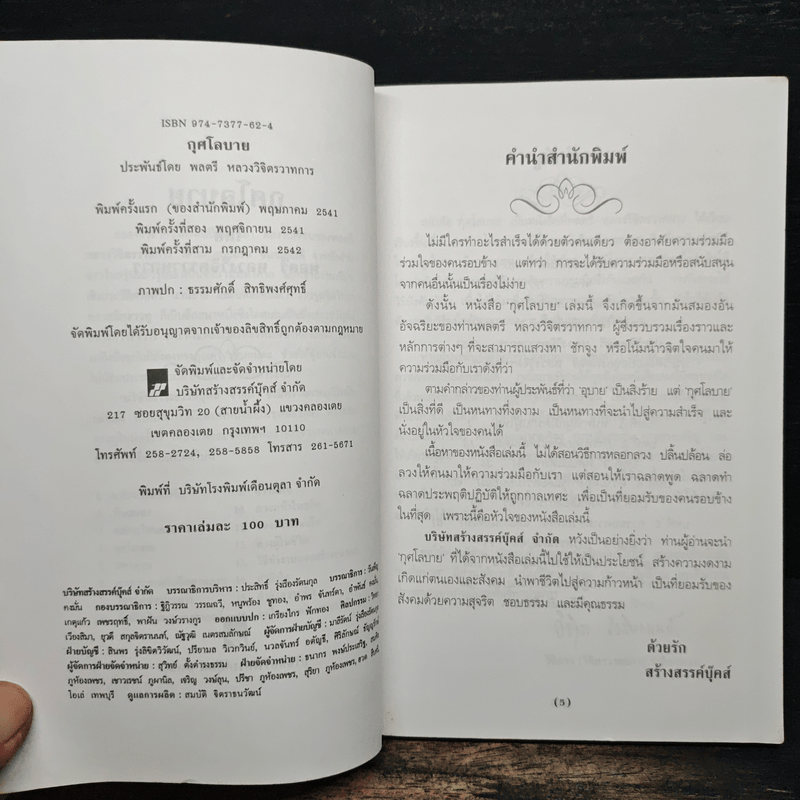 ISBN 974-7377-62-4
กุศโลบาย
ประพันธ์โดย พลตรี หลวงวิจิตรวาทการ
พิมพ์ครั้งแรก (ของสำนักพิมพ์) พฤษภาคม 2541
พิมพ์ครั้งที่สอง พฤศจิกายน 2541
พิมพ์ครั้งที่สาม กรกฎาคม 2542
ภาพปก : ธรรมศักดิ์ สิทธิพงศ์ศุทธิ์
จัดพิมพ์โดยได้รับอนุญาตจากเจ้าของลิขสิทธิ์ถูกต้องตามกฎหมาย
จัดพิมพ์และจัดจำหน่ายโดย
บริษัทสร้างสรรค์บุ๊คส์ จำกัด
217 ซอยสุขุมวิท 20 (สายน้ำผึ้ง) แขวงคลองเตย
เขตคลองเตย กรุงเทพฯ 10110
โทรศัพท์ 258-2724, 258-5858 โทรสาร 261-5671
พิมพ์ที่ บริษัทโรงพิมพ์เดือนตุลา จำกัด
ราคาเล่มละ 100 บาท
บริษัทสร้างสรรค์บุ๊คส์ จำกัด บรรณาธิการบริหาร : ประสิทธิ์ รุ่งเรืองรัตนกุล บรรณาธิการ :
คงมั่น กองบรรณาธิการ : ฐิฏิวรรณ วรรณฉวี, หนูพร้อง ชูทอง, อำพร จันทร์ดา,
เกตุแก้ว เพชรฤทธิ์, พาฝัน วงษ์วรางกูร ออกแบบปก : เกรียงไกร ฟักทอง ศิลปกรรม :
เวียงสิมา, ยุวดี สกุลจิตรานนท์, ณัฐวุฒิ เนตรสมลักษณ์ ผู้จัดการฝ่ายบัญชี : มาลีรัตน์
ฝ่ายบัญชี : สินพร รุ่งลิขิตวิวัฒน์, ปรียามล วิเวกวินย์, นวลจันทร์ อตัญธี,
ผู้จัดการฝ่ายจัดจำหน่าย : สุวิทย์ ตั้งดำรงธรรม ฝ่ายจัดจำหน่าย : ธนากร พงษ์ประเสริฐ,
ภูห้องเพชร, เชาวเรขน์ ภูผานิล, เจริญ วงษ์ลุน, ปรีชา ภูห้องเพชร, สุริยา ภูห้องเพชร,
โยเล่ เทพบุรี ดูแลการผลิต : สมบัติ จิตราธนวัฒน์
คำนำสำนักพิมพ์
ไม่มีใครทำอะไรสำเร็จได้ด้วยตัวคนเดียว ต้องอาศัยความร่วมมือ
ร่วมใจของคนรอบข้าง แต่ทว่า การจะได้รับความร่วมมือหรือสนับสนุน
จากคนอื่นนั้นเป็นเรื่องไม่ง่าย
ดังนั้น หนังสือ 'กุศโลบาย' เล่มนี้ จึงเกิดขึ้นจากมันสมองอัน
อัจฉริยะของท่านพลตรี หลวงวิจิตรวาทการ ผู้ซึ่งรวบรวมเรื่องราวและ
หลักการต่างๆ ที่จะสามารถแสวงหา ชักจูง หรือโน้มน้าวจิตใจคนมาให้
ความร่วมมือกับเราดังที่ว่า
ตามคำกล่าวของท่านผู้ประพันธ์ที่ว่า 'อุบาย' เป็นสิ่งร้าย แต่ 'กุศโลบาย'
เป็นสิ่งที่ดี เป็นหนทางที่งดงาม เป็นหนทางที่จะนำไปสู่ความสำเร็จ และ
นั่งอยู่ในหัวใจของคนได้
เนื้อหาของหนังสือเล่มนี้ ไม่ได้สอนวิธีการหลอกลวง ปลิ้นปล้อน ล่อ
ลวงให้คนมาให้ความร่วมมือกับเรา แต่สอนให้เราฉลาดพูด ฉลาดทำ
ฉลาดประพฤติปฏิบัติให้ถูกกาลเทศะ เพื่อเป็นที่ยอมรับของคนรอบข้าง
ในที่สุด เพราะนี้คือหัวใจของหนังสือเล่มนี้
บริษัทสร้างสรรค์บุ๊คส์ จำกัด หวังเป็นอย่างยิ่งว่า ท่านผู้อ่านจะนำ
'กุศโลบาย' ที่ได้จากหนังสือเล่มนี้ไปใช้ให้เป็นประโยชน์ สร้างความงดงาม
เกิดแก่ตนเองและสังคม นำพาชีวิตไปสู่ความก้าวหน้า เป็นที่ยอมรับของ
สังคมด้วยความสุจริต ชอบธรรม และมีคุณธรรม
ด้วยรัก
สร้างสรรค์บุ๊คส์
(5)